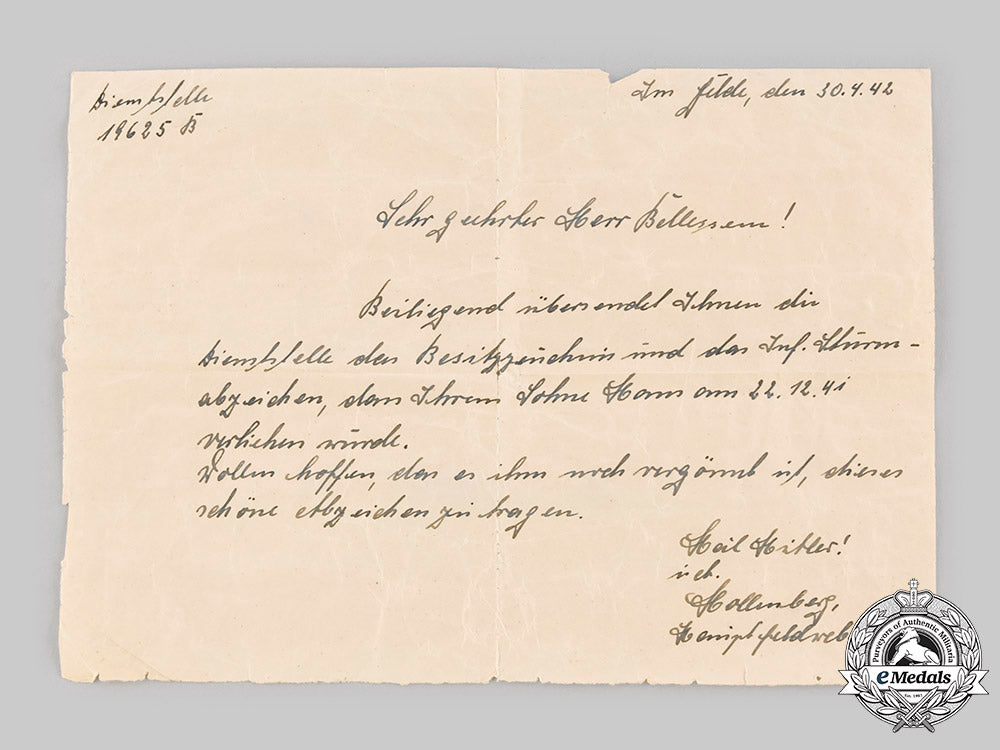 Dienststelle
19625 B
Im Felde, den 30.4.42
Sehr geehrter Herr Bellessem!
Beiliegend übersendet Ihnen die
Dienststelle das Besitzzeichnis und das Inf. Sturm-
abzeichen, dass Ihrem Sohne Hans am 22.12.41
verliehen wurde.
Wollen hoffen, das es ihm noch vergönnt ist, dieses
schöne Abzeichen zu tragen.
Heil Hitler!
Hollenberg,
Hauptfeldweb
Purveyors of Authentic Militaria
eMedals